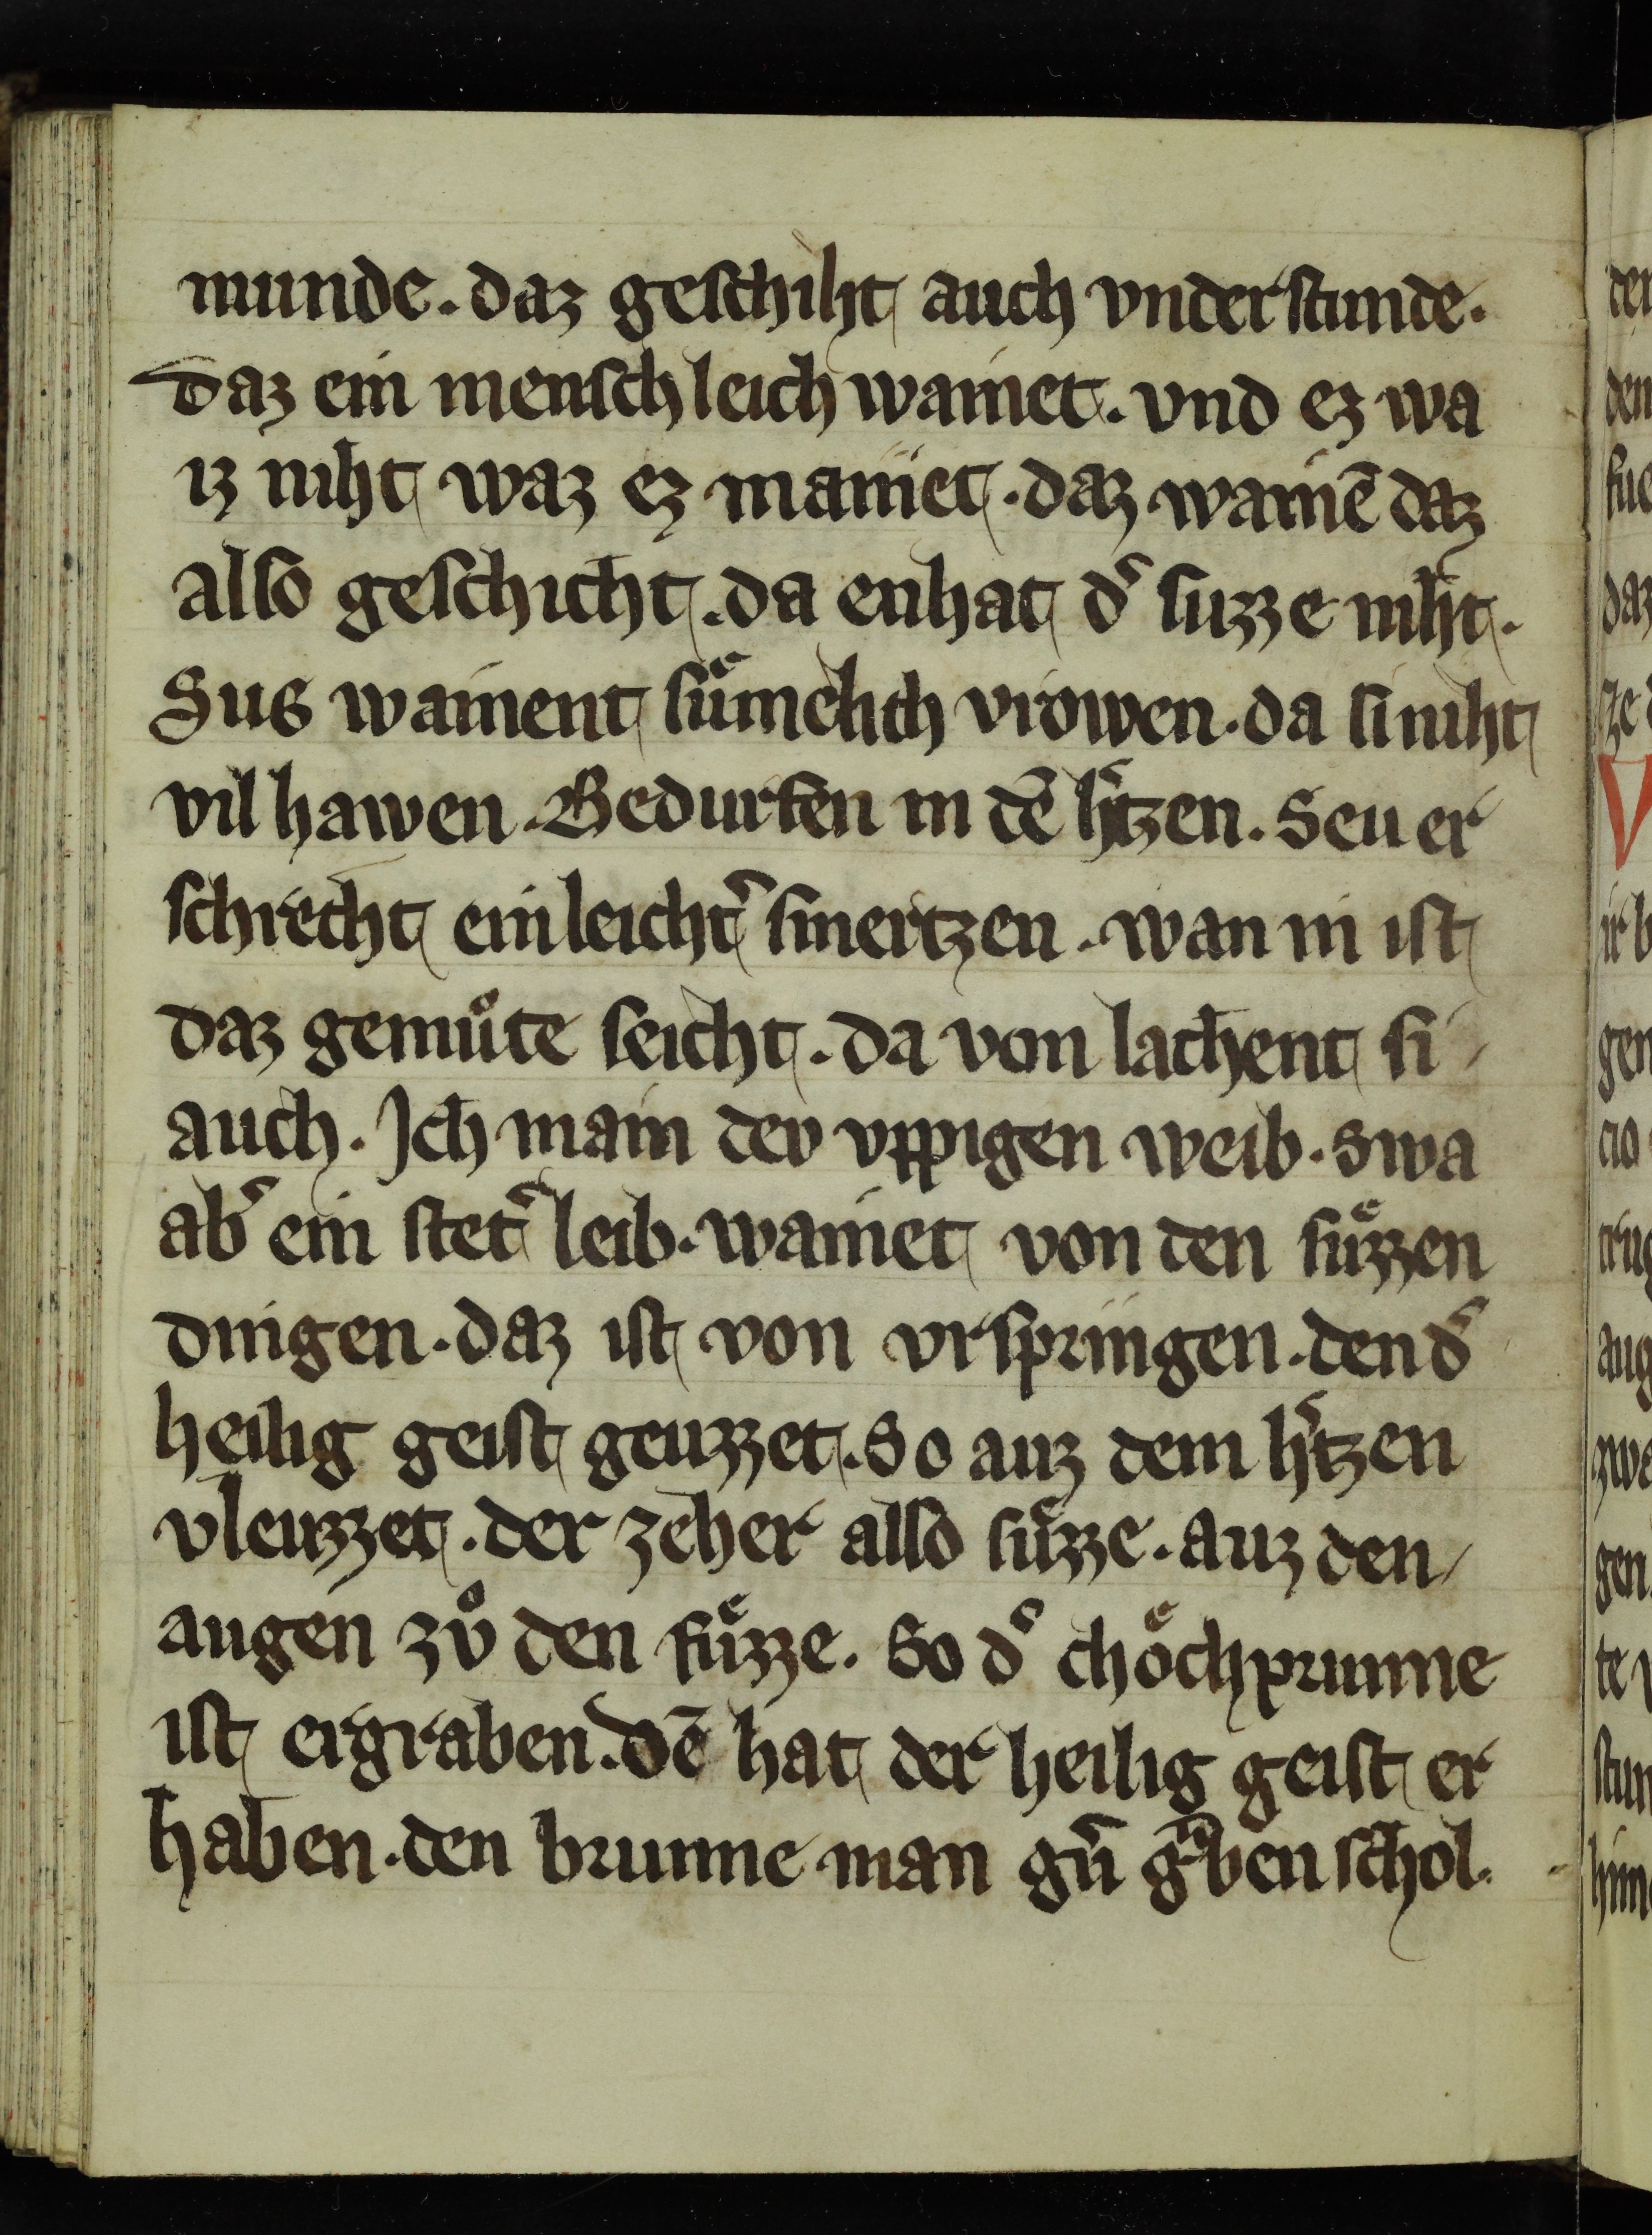 munde. daz geschiht auch vnderstunde.
daz ein menschleich wainet. vnd ez wa
iz niht waz ez mainet. daz wainē daz
also geschicht. da enhat dˀ suzze niht.
Sus wainent suͤmelich vrowen. da si niht
vil hawen. Bedurfen in dē hˀtzen. Seu er
schrecht ein leichtˀ smertzen. wan in ist
daz gemuͦte seicht. da von lachent si
auch. Jch main dev vppigen weib. swa
abˀ ein stetˀ leib. wainet von den suͤzzen
dingen. daz ist von vrspringen. den dˀ
heilig geist geuzzet. So auz dem hˀtzen
vleuzzet. der zeher also suͤzze. auz den
augen zvͦ den fuͤzze. So dˀ choͤchprunne
ist ergraben. dē hat der heilig geist er
haben. den brunne man gn̄ gͣben schol.